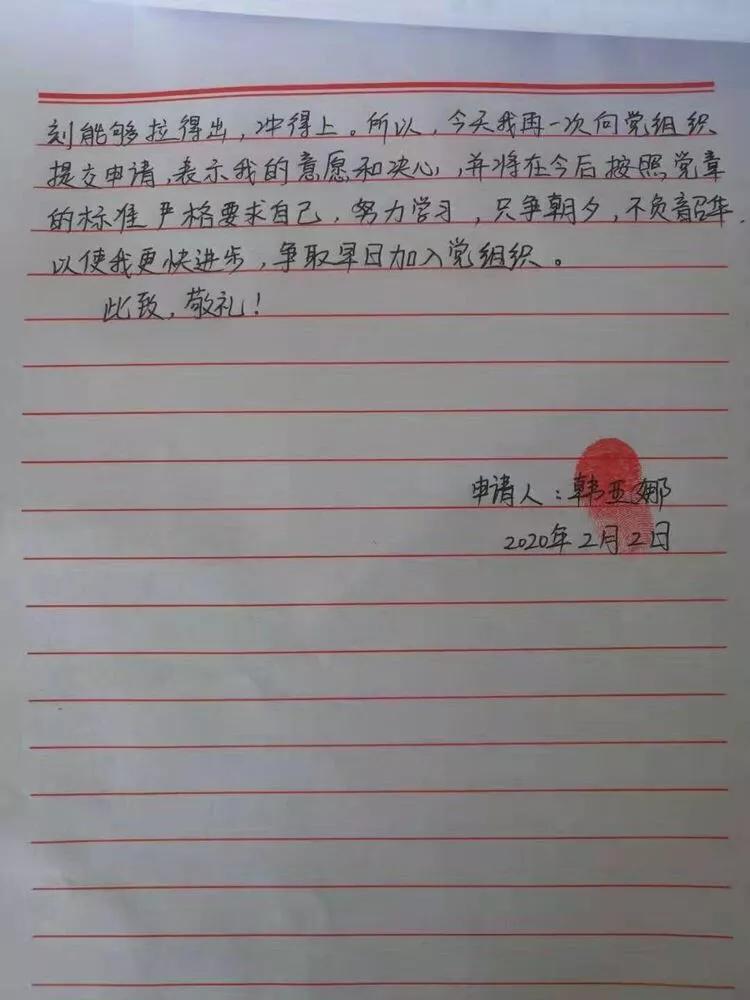 刻能够拉得出，冲得上。所以，今天我再一次向党组织
提交申请，表示我的意愿和决心，并将在今后按照党章
的标准严格要求自己，努力学习，只争朝夕，不负韶华，
以使我更快进步，争取早日加入党组织。
此致，敬礼！
申请人：韩亚娜
2020年2月2日